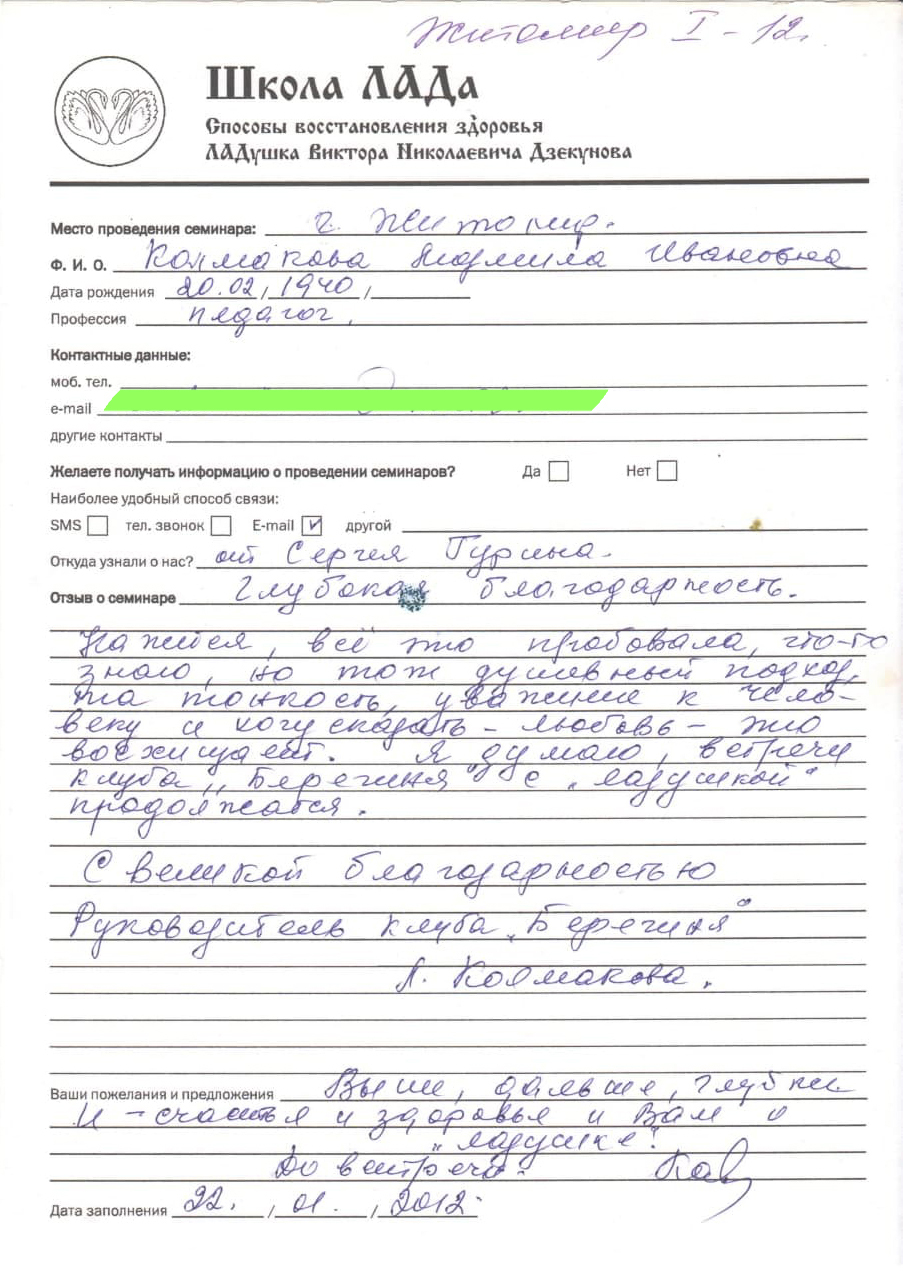 Житомир I - 12г.
Школа ЛАДа
Способы восстановления здоровья
ЛАДушка Виктора Николаевича Дзекунова
Место проведения семинара: г. Житомир.
Ф. И. О. Колмакова Людмила Ивановна
Дата рождения 20.02, / 1940, /
Профессия педагог,
Контактные данные:
моб. тел.
e-mail
другие контакты
Желаете получать информацию о проведении семинаров? Да Нет
Наиболее удобный способ связи:
SMS тел. звонок E-mail другой
Откуда узнали о нас? от Сергея Гурина.
Отзыв о семинаре Глубокая благодарность.
Кажется, всё это пробовала, что-то
знаю, но такой душевный подход,
та тонкость, уважение к чело-
веку и хочу сказать - любовь - это
восхищает. Я думаю, встречи
клуба „Берегиня" с „ладушкой"
продолжатся.
С великой благодарностью
Руководитель клуба „Берегиня"
Л. Колмакова.
Ваши пожелания и предложения Выше, дальше, глубже
И - счастья и здоровья и Вам и
„ладушке"!
До встречи.
Дата заполнения 22. / 01. / 2012.